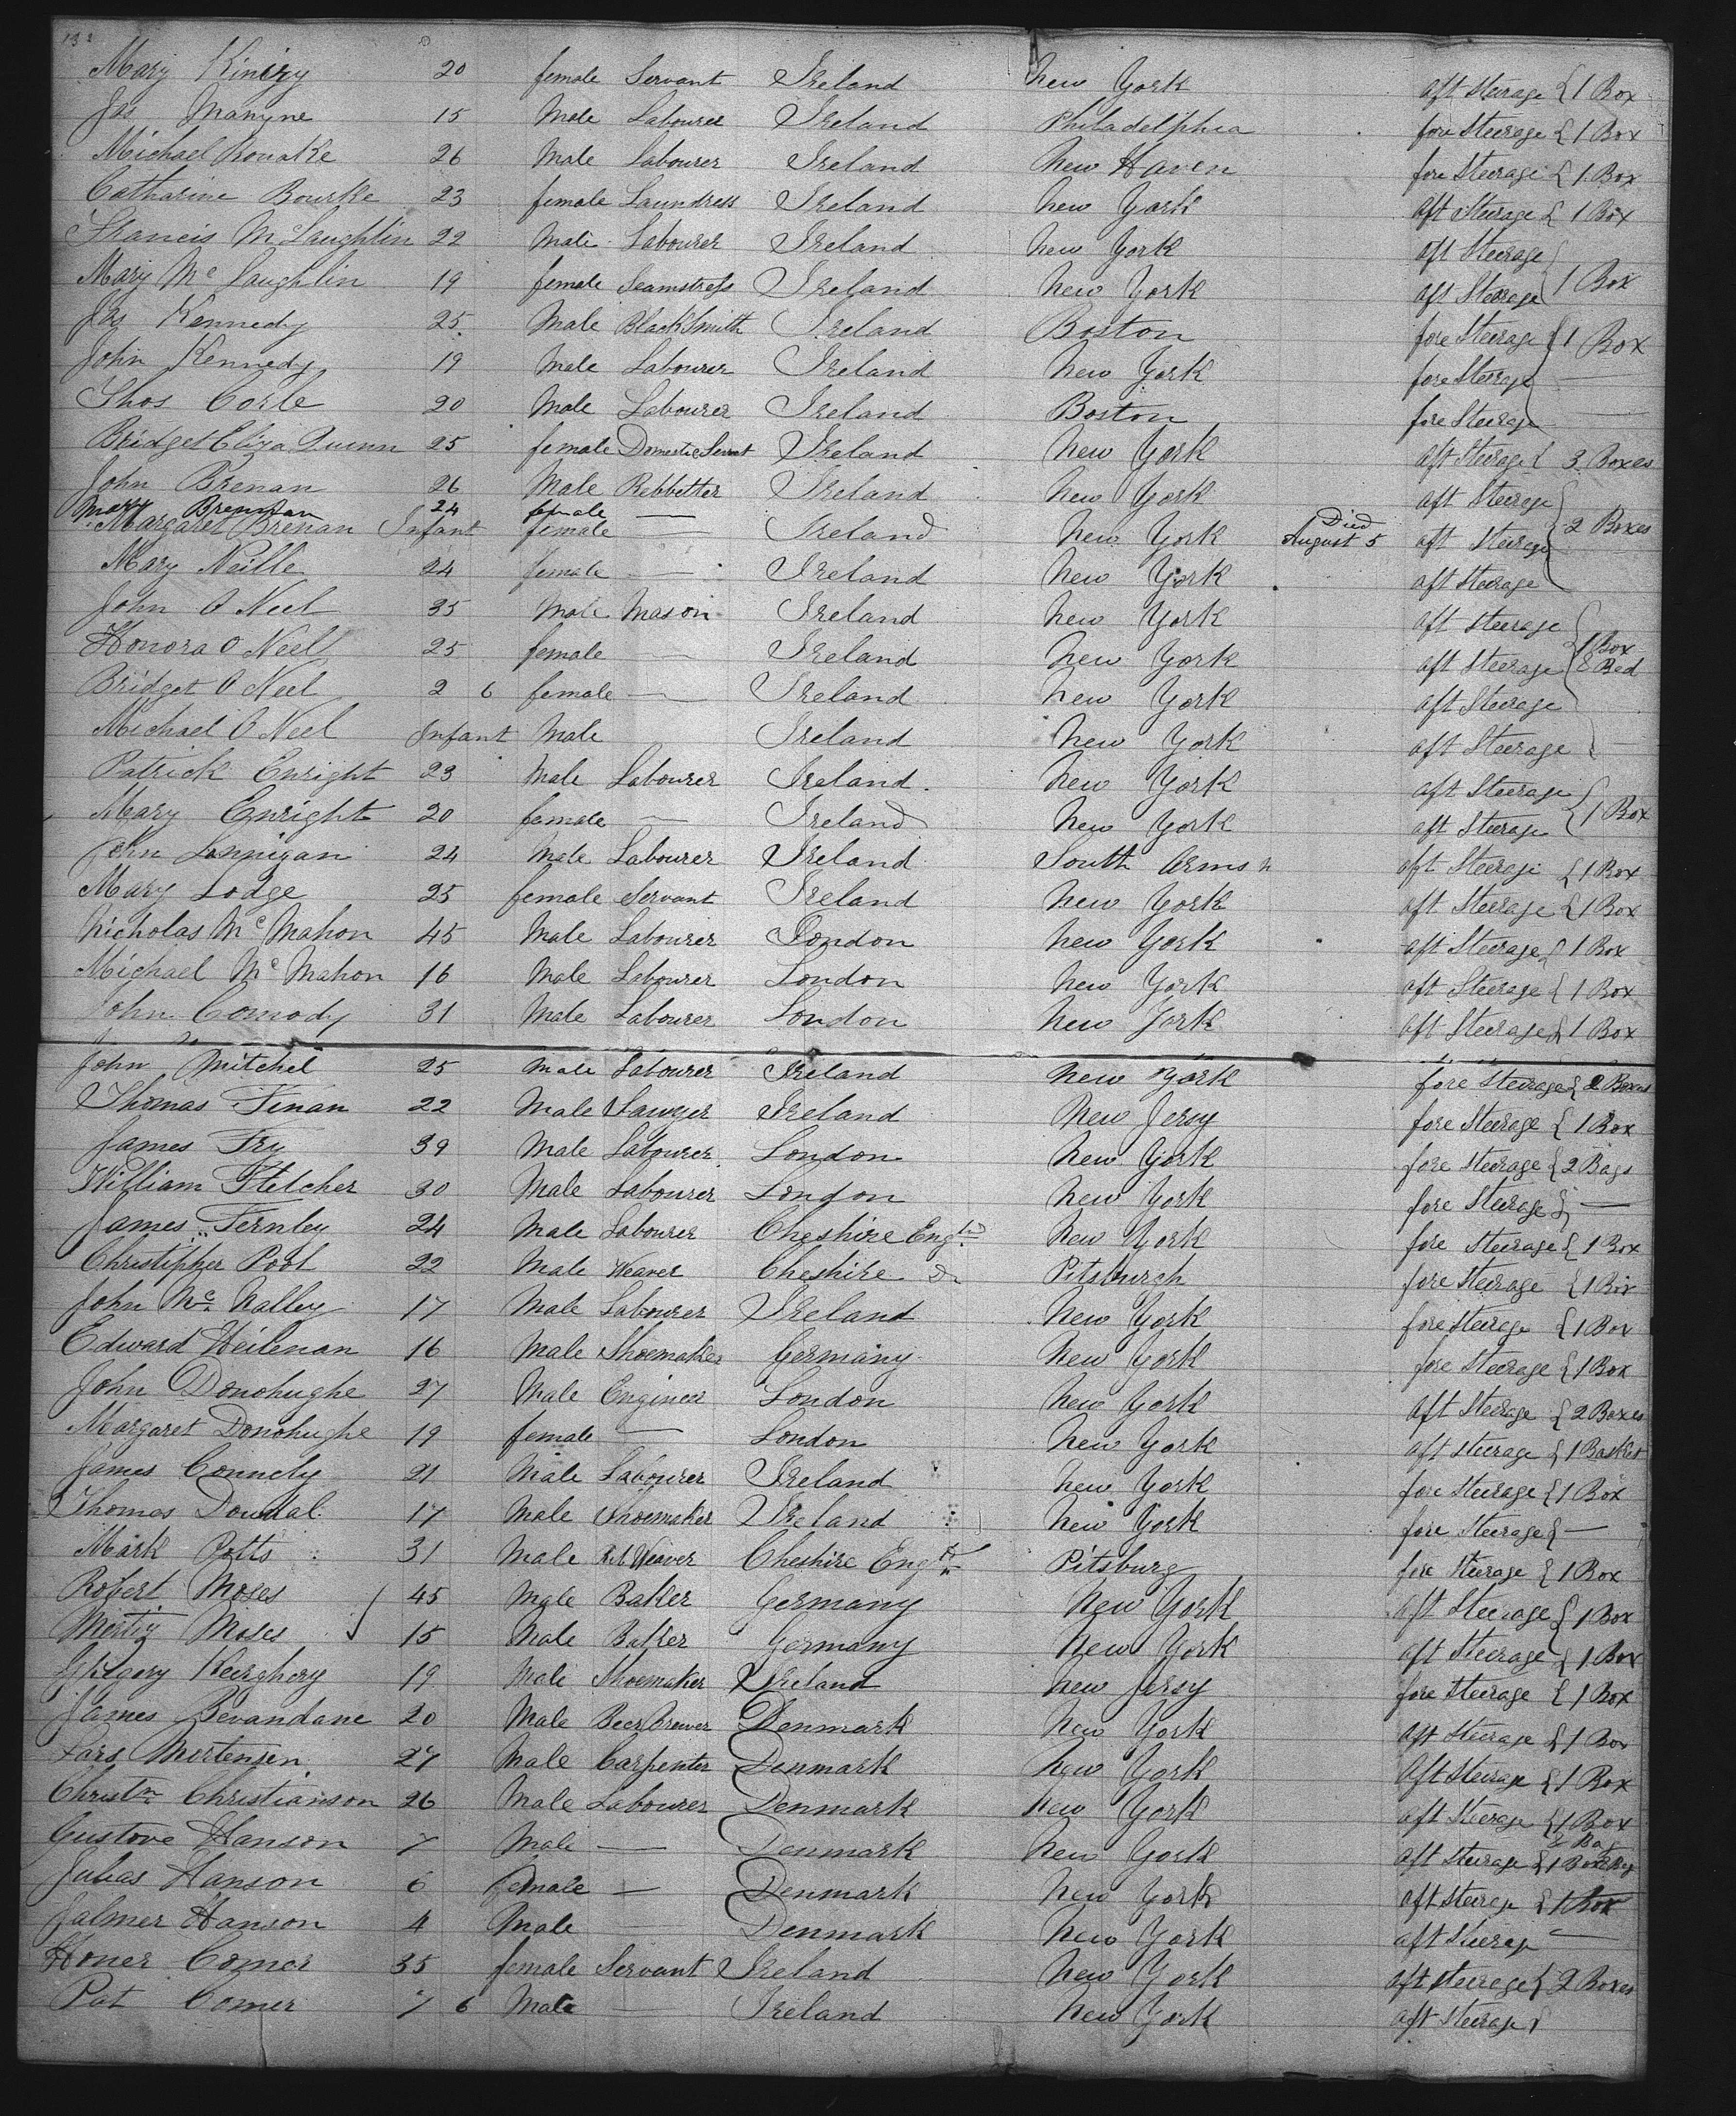 Mary 20 female Servant Ireland New York aft Steerage { 1 Box
Jas 15 Male Labourer Ireland Philadelphia fore Steerage { 1 Box
Michael 26 Male Labourer Ireland New Haven fore Steerage { 1 Box
Catharine Bourke 23 female Laundress Ireland New York aft Steerage { 1 Box
Francis McLaughlin 22 Male Labourer Ireland New York aft Steerage
Mary Mc Laughlin 19 female Seamstress Ireland New York aft Steerage } 1 Box
Jas Kennedy 25 Male BlackSmith Ireland Boston fore Steerage { 1 Box
John Kennedy 19 Male Labourer Ireland New York fore Steerage
Thos 20 Male Labourer Ireland Boston fore Steerage —
Bridget Eliza Quinn 25 female Domestic Servant Ireland New York aft Steerage { 3 Boxes
John Brenan 26 Male Ireland New York aft Steerage
Mary Brennan 24 female —
Margaret Brenan Infant female Ireland New York Died August 5 aft Steerage 2 Boxes
Mary Neille 24 female — Ireland New York aft Steerage
John O Neel 35 Male Mason Ireland New York aft Steerage
Honora O Neel 25 female — Ireland New York aft Steerage 1 Box & Bed
Bridget O Neel 2 6 female — Ireland New York aft Steerage
Michael O Neel Infant Male Ireland New York aft Steerage
Patrick Enright 23 Male Labourer Ireland New York aft Steerage
Mary Enright 20 female — Ireland New York aft Steerage { 1 Box
John Lannigan 24 Male Labourer Ireland South aft Steerage { 1 Box
Mary Lodge 25 female Servant Ireland New York aft Steerage { 1 Box
Nicholas Mc Mahon 45 Male Labourer London New York aft Steerage { 1 Box
Michael Mc Mahon 16 Male Labourer London New York aft Steerage { 1 Box
John Comody 31 Male Labourer London New York aft Steerage { 1 Box
John Mitchel 25 Male Labourer Ireland New York fore Steerage { 2 Boxes
Thomas Finan 22 Male Sawyer Ireland New Jersy fore Steerage { 1 Box
James Fry 39 Male Labourer London New York fore Steerage { 2 Bags
William Fletcher 30 Male Labourer London New York fore Steerage { —
James Fernley 24 Male Labourer Cheshire Engd New York fore Steerage { 1 Box
Christipher Pool 22 Male Weaver Cheshire Do Pitsburgh fore Steerage { 1 Box
John Mc Nalley 17 Male Labourer Ireland New York fore Steerage { 1 Box
Edward Weilenan 16 Male Shoemaker Germany New York fore Steerage { 1 Box
John Donohughe 27 Male Engineer London New York aft Steerage { 2 Boxes
Margaret Donohughe 19 female — London New York aft Steerage { 1 Basket
James Connely 21 Male Labourer Ireland New York fore Steerage { 1 Box
Thomas Dowdal 17 Male Shoemaker Ireland New York fore Steerage { —
Mark Potts 31 Male Weaver Cheshire Engd Pitsburg fore Steerage { 1 Box
Robert Moses 45 Male Baker Germany New York aft Steerage { 1 Box
Moses 15 Male Baker Germany New York aft Steerage { 1 Box
Gregory 19 Male Shoemaker Ireland New Jersy fore Steerage { 1 Box
James Bevandane 20 Male Beer Brewer Denmark New York aft Steerage { 1 Box
Lars Mortensen 27 Male Carpenter Denmark New York Aft Steerage { 1 Box
Christn Christianson 26 Male Labourer Denmark New York aft Steerage { 1 Box & Bag
Gustove Hanson 7 Male — Denmark New York aft Steerage { 1 Box
Julias Hanson 6 Female — Denmark New York aft Steerage { 1 Box
Jalmer Hanson 4 Male Denmark New York aft Steerage —
Honer Comer 35 female Servant Ireland New York aft Steerage { 2 Boxes
Pat Comer 7 6 Male — Ireland New York aft Steerage {